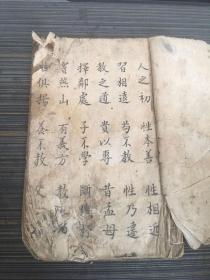 人之初 性本善 性相近
習相遠 苟不教 性乃遷
教之道 貴以專 昔孟母
擇鄰處 子不學 斷機杼
竇燕山 有義方 教五
俱揚 養不教 父